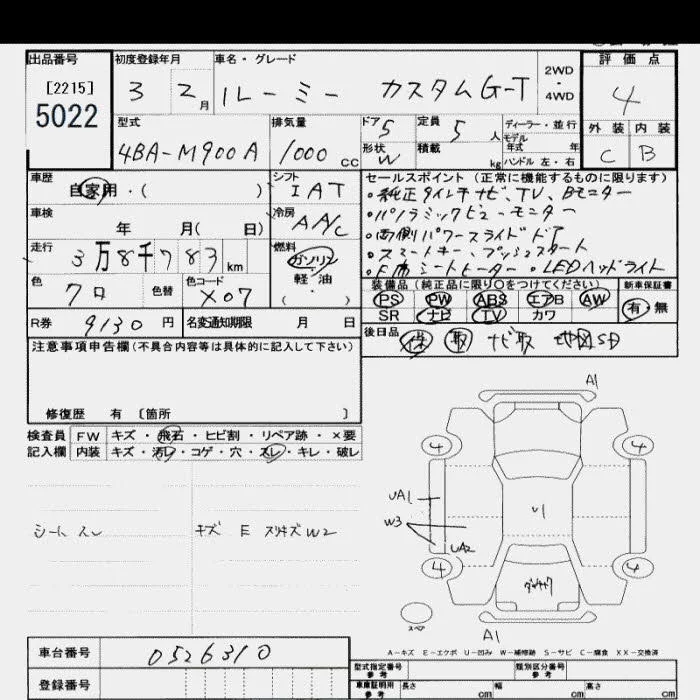 出品番号 初度登録年月 車名・グレード 評価点
[2215] 5022 3 2月 ルーミー カスタムG-T 2WD・4WD 4
型式 排気量 ドア 5 定員 5人 ディーラー・並行 外装 内装
4BA-M900A 1000cc 形状 W 積載 kg モデル年式 年 ハンドル 左・右 C B
車歴 シフト セールスポイント(正常に機能するものに限ります)
自家用・( ) IAT ・純正9インチナビ、TV、Bモニター
車検 冷房 ・パノラミックビューモニター
年 月( 日) AA/C ・両側パワースライドドア
走行 燃料 ・スマートキー、プッシュスタート
3万8千783km ガソリン ・F席シートヒーター ・LEDヘッドライト
色 色替 色コード 軽油 装備品(純正品に限り○をつけてください) 新車保証書
クロ X07 ( ) PS PW ABS エアB AW 有・無
SR ナビ TV カワ
R券 9130円 名変通知期限 月 日 後日品 保 取 ナビ取 地図SD
注意事項申告欄(不具合内容等は具体的に記入して下さい)
修復歴 有 〔箇所 〕
検査員 FW キズ・飛石・ヒビ割・リペア跡・×要
記入欄 内装 キズ・汚レ・コゲ・穴・スレ・キレ・破レ
シートスレ キズ E スリキズW2
A1
4 4
UA1
U1
W3
UA2
4 4
スペア
A1
A-キズ E-エクボ U-凹み W-補修跡 S-サビ C-腐食 XX-交換済
車台番号 0526310
登録番号
型式指定番号 参考 類別区分番号 参考
車庫証明用 参考 長さ cm 幅 cm 高さ cm